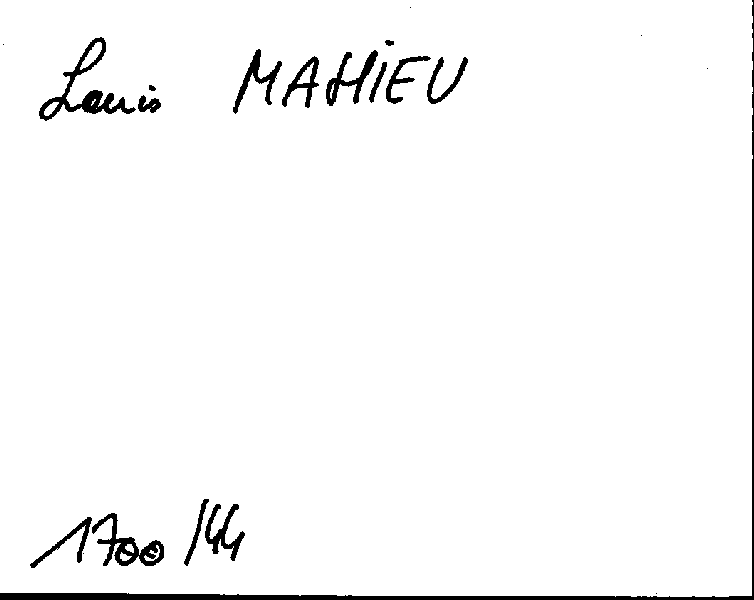 Louis MAHiEU
1700/44